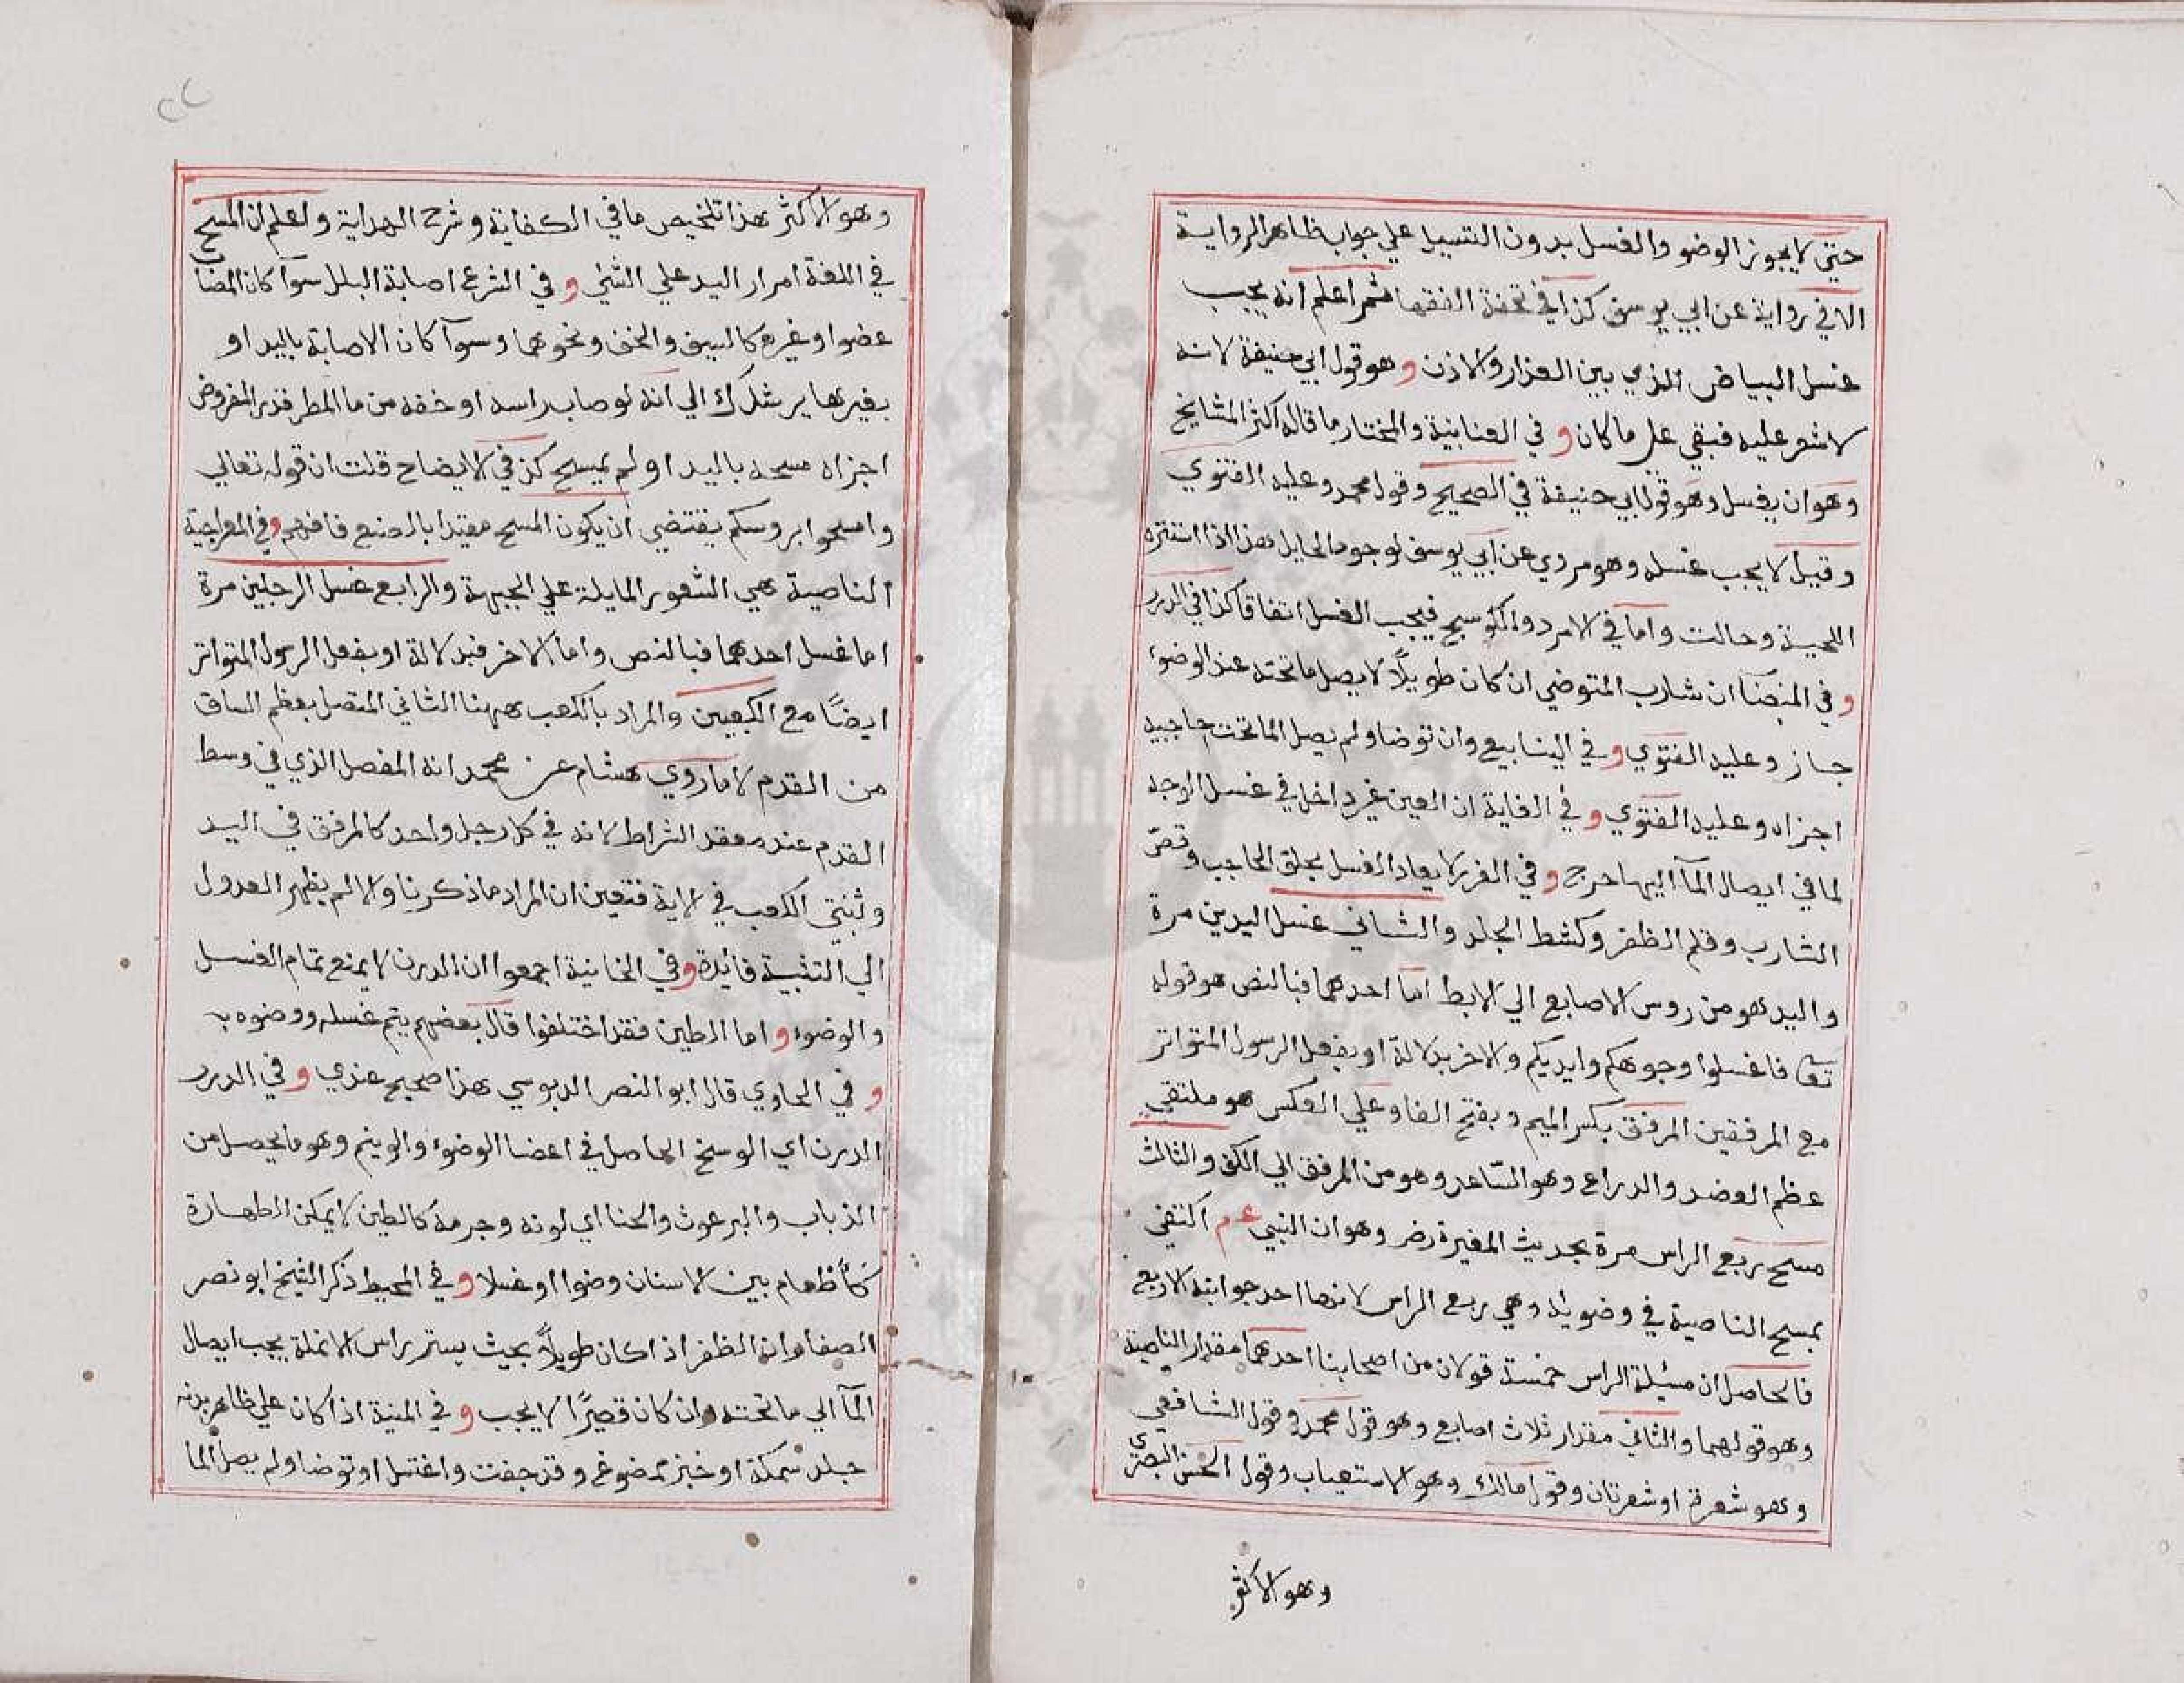 حتى لا يجوز الوضو والغسل بدون التسييل علي جواب ظاهر الرواية
الا في رواية عن ابي يوسف كذا في تحفة الفقها ثم اعلم انه يجب
غسل البياض الذي بين العذار والاذن وهو قول ابي حنيفة لانه
لا شعر عليه فبقي على ما كان و في العنابية والمختار ما قاله اكثر المشايخ
وهو ان يغسل وهو قول ابي حنيفة في الصحيح وقول محمد وعليه الفتوي
وقيل لا يجب غسله وهو مروي عن ابي يوسف لوجود الحايل هذا اذا استتره
اللحية وحالت واما في الامرد والكوسج فيجب الغسل اتفاقا كذا في الدرر
و في ان شارب المتوضي ان كان طويلًا لا يصل ما تحته عند الوضوء
جاز وعليه الفتوي و في الينابيع وان توضا ولم يصل الما تحت حاجبيه
اجزاه وعليه الفتوي و في الغاية ان العين غير داخل في غسل الوجه
لما في ايصال المآ اليها حرج و في الغرر لا يعاد الغسل بحلق الحاجب وقصّ
الشارب وقلم الظفر وكشط الجلد والثاني غسل اليدين مرة
واليد هو من روس الاصابع الي الابط اما احدهما فبالنص هو قوله
تعا فاغسلوا وجوهكم وايديكم والاخر بدلالة او بفعل الرسول المتواتر
مع المرفقين المرفق بكسر الميم وبفتح الفا وعلي العكس هو ملتقي
عظم العضد والدراع وهو السّاعد وهو من المرفق الي الكف والثالث
مسح ربع الراس مرة بحديث المغيرة رضـ وهو ان النبي عم اكتفي
بمسح الناصية في وضويه وهي ربع الراس لانها احد جوانبه الاربع
فالحاصل ان مسئلة الراس خمسة قولان من اصحابنا احدهما مقدار الناصية
وهو قولهما والثاني مقدار ثلاث اصابع وهو قول محمد وقول الشافعي
وهو شعرة او شعرتان وقول مالك وهو الاستعياب وقول الحسن البصري
وهو الاكثر
٢٢
وهو الاكثر هذا تلخيص ما في الكفاية وشرح الهداية واعلم ان المسح
في اللغة امرار اليد علي الشئي و في الشرع اصابة البلل سوآ كان المصاب
عضوا او غيره كالسيف والخف ونحوهما وسوآ كان الاصابة باليد او
بغيرها يرشدك الي انه لو صاب راسه او خفه من ما المطر قدر المفروض
اجزاه مسحه باليد او لم يمسح كذ في الايضاح قلت ان قوله تعالي
وامسحوا بروسكم يقتضي ان يكون المسح مقيدا بالصنع فافهم و في المعراجية
الناصية هي الشعور المايلة علي الجبهة والرابع غسل الرجلين مرة
اما غسل احدهما فبالنص واما الاخر فبدلالة او بفعل الرسول المتواتر
ايضًا مع الكعبين والمراد بالكعب ههنا الثاني المتصل بعظم الساق
من القدم لا ما روي هشام عن محمد انه المفصل الذي في وسط
القدم عند معقد الشراط لانه في كل رجل واحد كالمرفق في اليد
وثبتي الكعب في الاية فتعين ان المراد ما ذكرنا والا لم يظهر العدول
الي التثبية فايدة و في الخانية اجمعوا ان الدرن لا يمنع تمام الغسل
والوضوء و اما الطين فقد اختلفوا قال بعضهم يتم غسله ووضوه به
و في الحاوي قال ابو النصر الدبوسي هذا صحيح عندي و في الدرر
الدرن اي الوسخ الحاصل في اعضا الوضوء والوينم وهو ما يحصل من
الذباب والبرعوث والحنا اي لونه وجرمه كالطين لا يمكن الطهارة
كاطعام بين الاسنان وضوا او غسلا و في المحيط ذكر الشيخ ابو نصر
الصفار ان الظفر اذا كان طويلًا بحيث يستر براس الانملة يجب ايصال
المآ الي ما تحته وان كان قصيرًا لا يجب و في المنية اذا كان علي ظاهر بدنه
جلد سمكة او خبز ممضوغ وقد جفت واغتسل او توضا ولم يصل الما